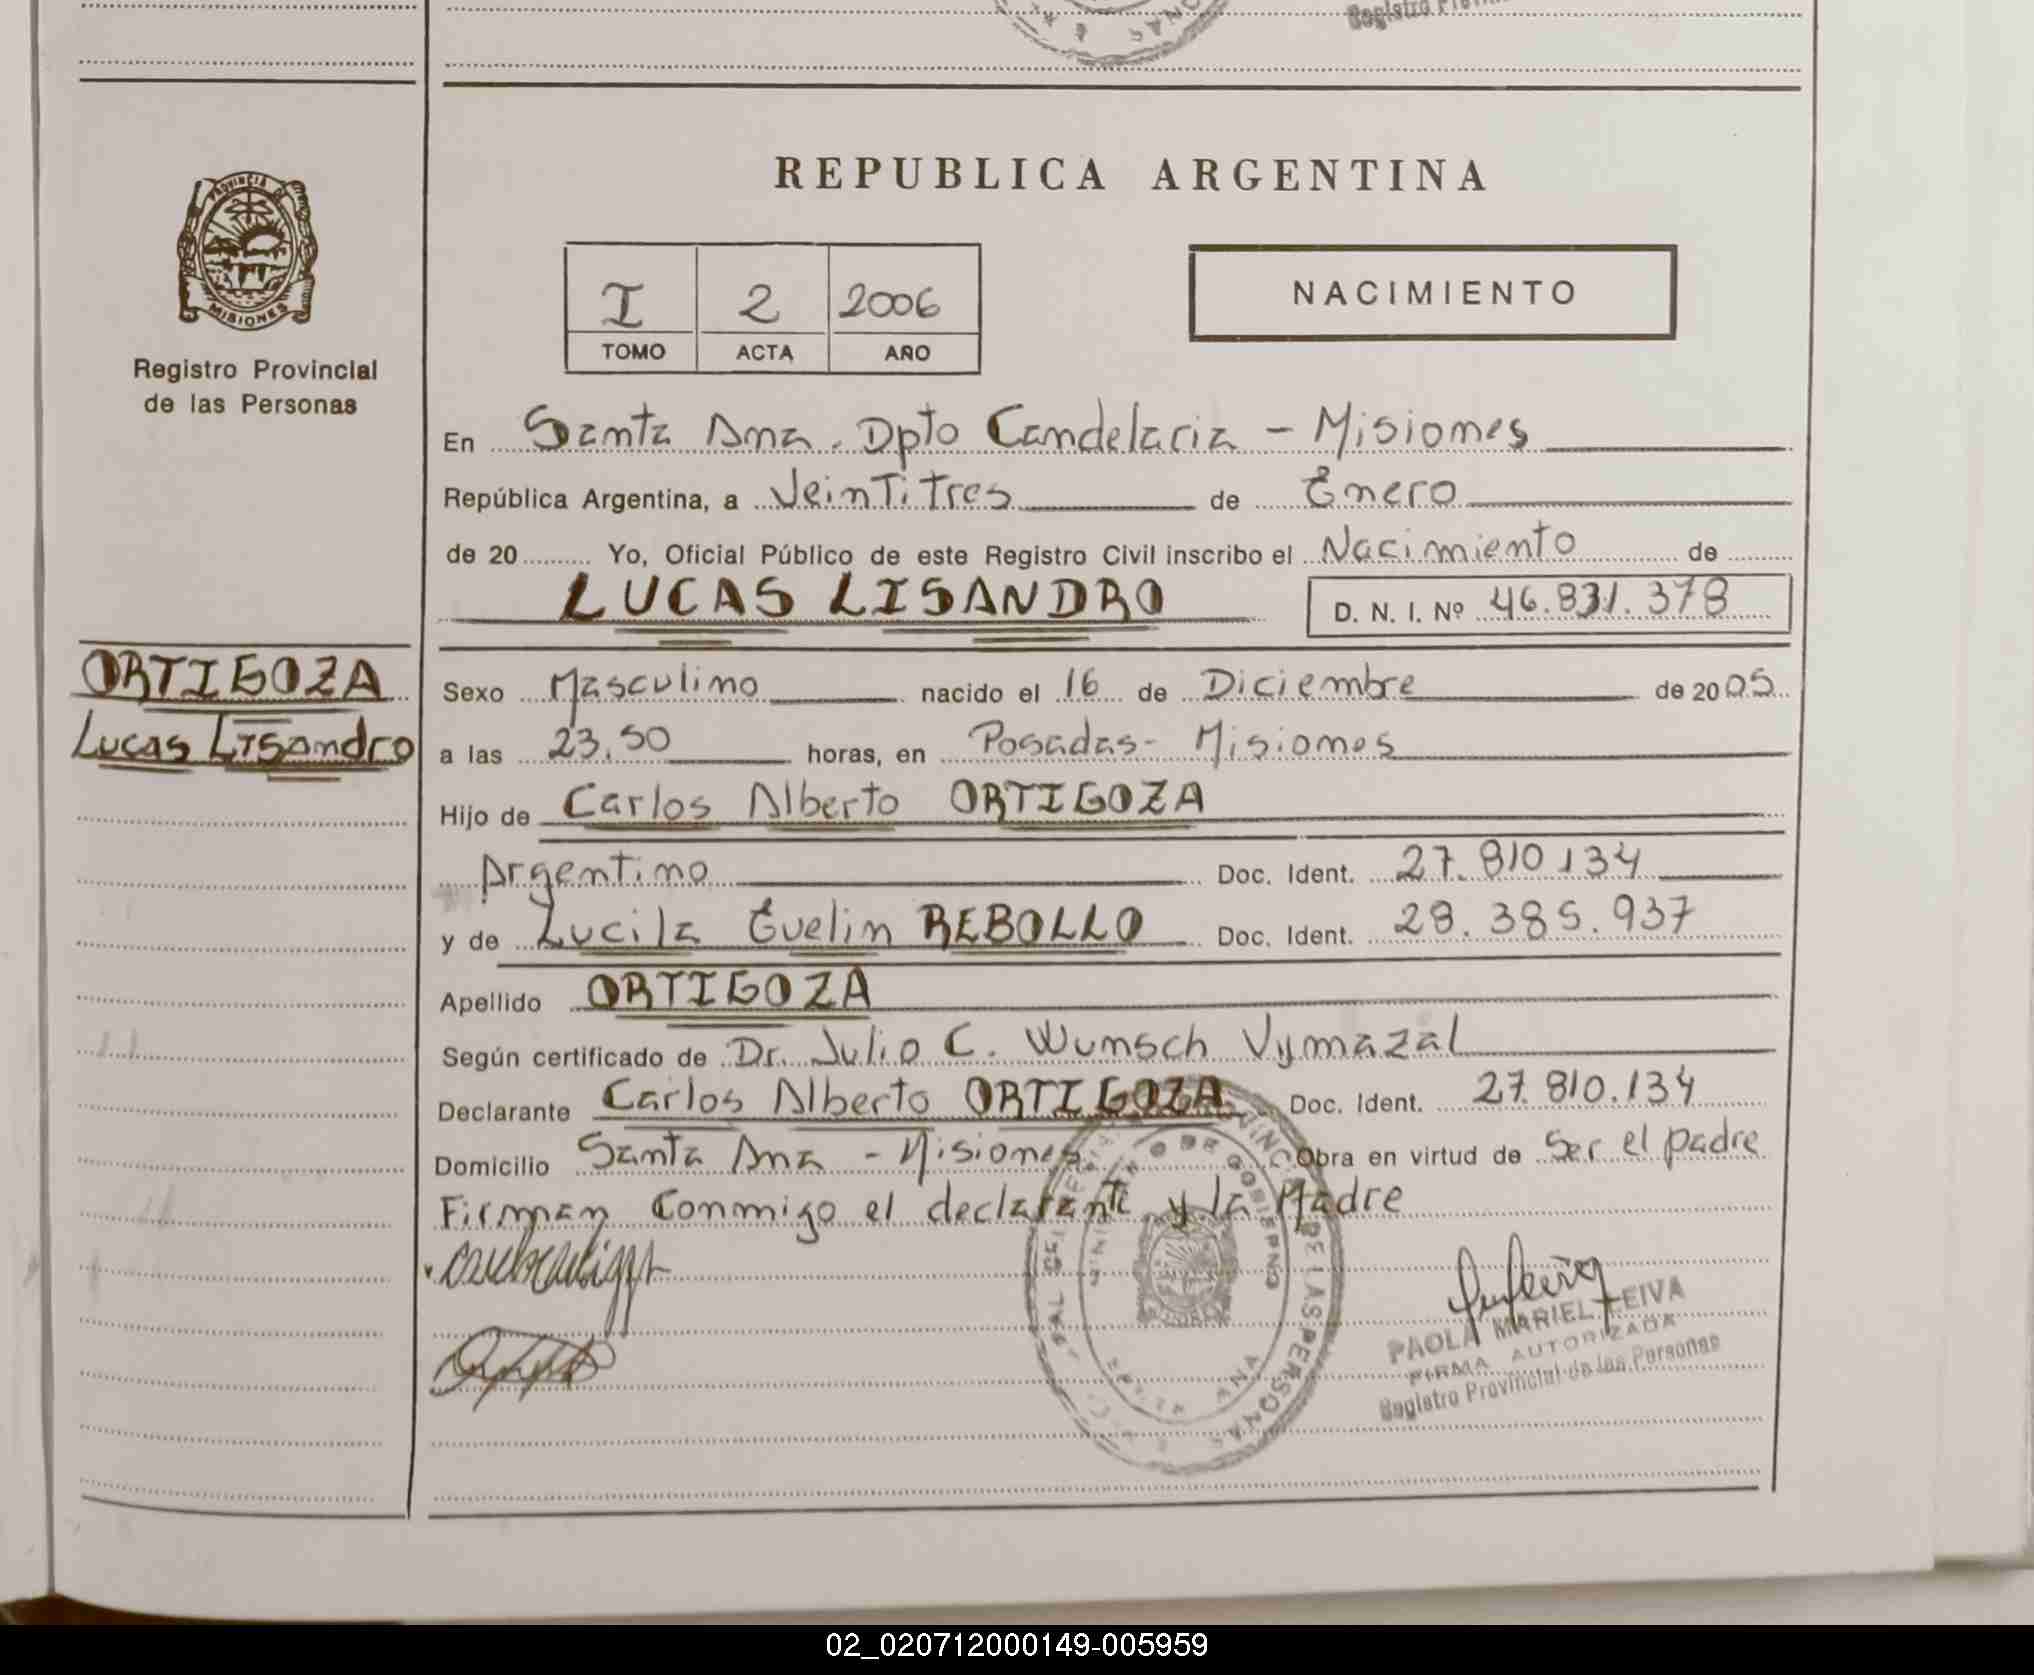 Registro Provi
PROVINCIA DE
MISIONES
Registro Provincial
de las Personas
REPUBLICA ARGENTINA
I 2 2006
TOMO ACTA AÑO
NACIMIENTO
En Santa Ana. Dpto Candelaria - Misiones
República Argentina, a Veintitres de Enero
de 20 ........ Yo, Oficial Público de este Registro Civil inscribo el Nacimiento de
LUCAS LISANDRO D. N. I. Nº 46.831.378
ORTIGOZA
Lucas Lisandro
Sexo Masculino nacido el 16 de Diciembre de 2005
a las 23.50 horas, en Posadas - Misiones
Hijo de Carlos Alberto ORTIGOZA
Argentino Doc. Ident. 27.810.134
y de Lucila Evelin REBOLLO Doc. Ident. 28.385.937
Apellido ORTIGOZA
Según certificado de Dr. Julio C. Wunsch Vymazal
Declarante Carlos Alberto ORTIGOZA Doc. Ident. 27.810.134
Domicilio Santa Ana - Misiones Obra en virtud de Ser el padre
Firman Conmigo el declarante y la Madre
PAOLA MARIEL LEIVA
FIRMA AUTORIZADA
Registro Provincial de las Personas
DE LAS PERSONAS
DE GOBIERNO
02_020712000149-005959